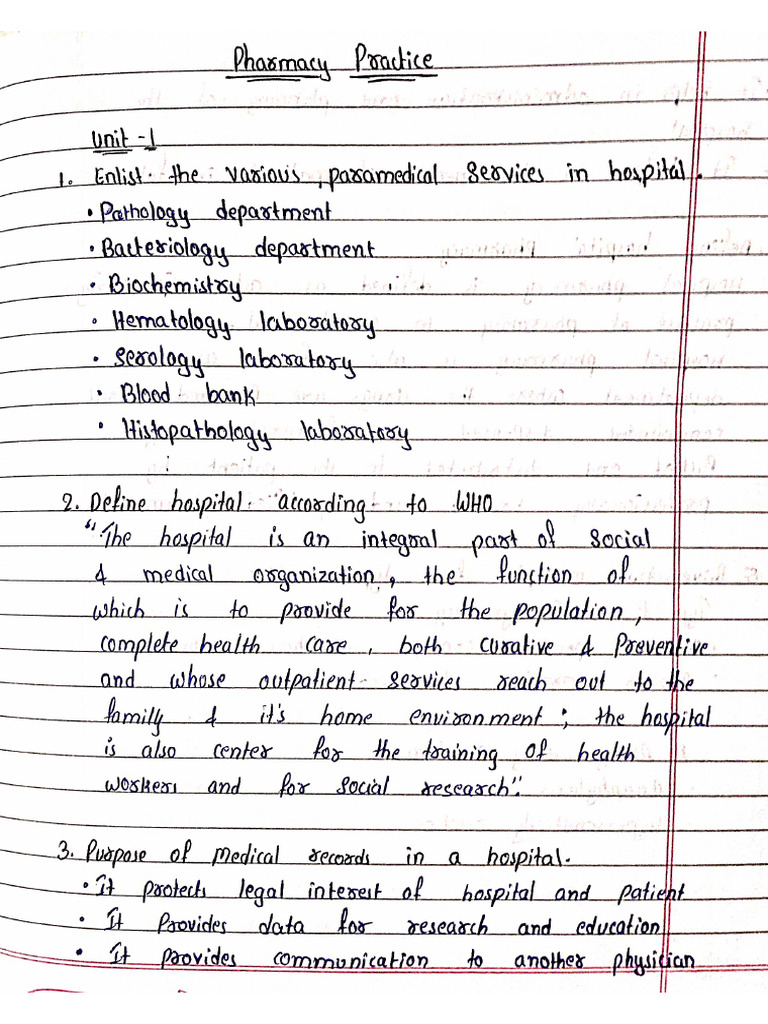 Pharmacy Practice
Unit -1
1. Enlist the various paramedical services in hospital.
• Pathology department
• Bacteriology department
• Biochemistry
• Hematology laboratory
• Serology laboratory
• Blood bank
• Histopathology laboratory
2. Define hospital according to WHO
"The hospital is an integral part of social
& medical organization, the function of
which is to provide for the population,
complete health care, both curative & Preventive
and whose outpatient services reach out to the
family & it's home environment; the hospital
is also center for the training of health
workers and for social research".
3. Purpose of medical records in a hospital.
• It protects legal interest of hospital and patient
• It Provides data for research and education
• It provides communication to another physician